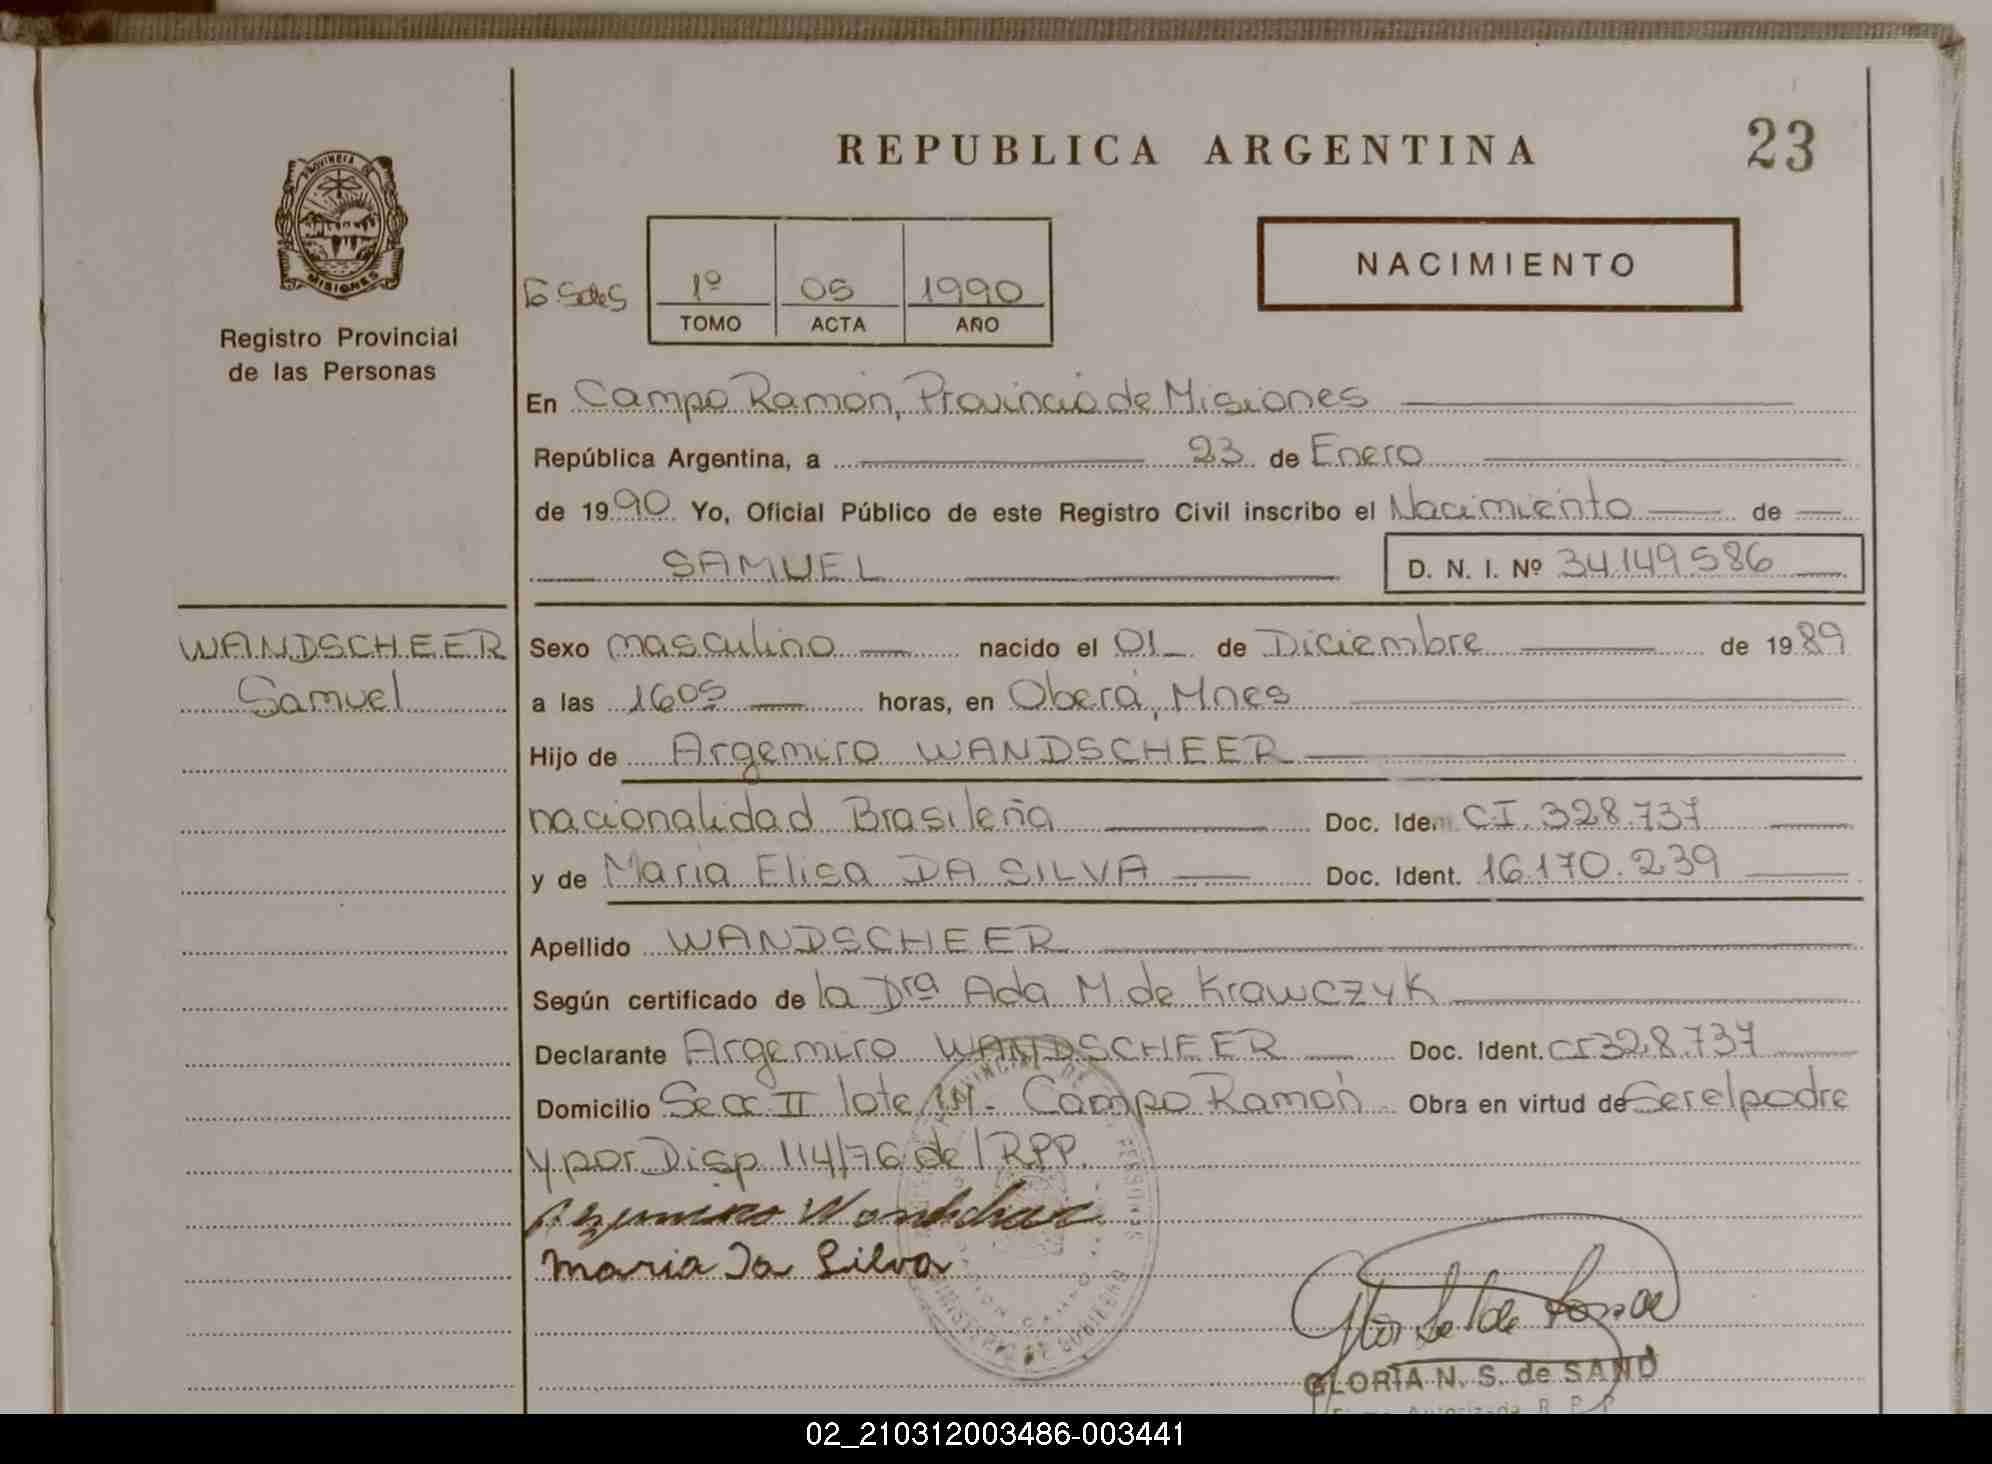 REPUBLICA ARGENTINA
23
PROVINCIA DE
MISIONES
Registro Provincial
de las Personas
1º 05 1990
TOMO ACTA AÑO
NACIMIENTO
En Campo Ramón, Provincia de Misiones
República Argentina, a 23 de Enero
de 1990 Yo, Oficial Público de este Registro Civil inscribo el Nacimiento de
SAMUEL D. N. I. Nº 34.149.586
WANDSCHEER
Samuel
Sexo masculino nacido el 01 de Diciembre de 1989
a las 1605 horas, en Oberá, Mnes
Hijo de Argemiro WANDSCHEER
nacionalidad Brasileña Doc. Iden CI. 328.737
y de Maria Elisa DA SILVA Doc. Ident. 16.170.239
Apellido WANDSCHEER
Según certificado de la Drª Ada M. de Krawczyk
Declarante Argemiro WANDSCHEER Doc. Ident. CI 328.737
Domicilio Secc II lote Campo Ramón Obra en virtud de Ser el padre
y por Disp 114/76 del RPP.
Maria Da Silva
GLORIA N. S. de SAND
R. P. P
02_210312003486-003441